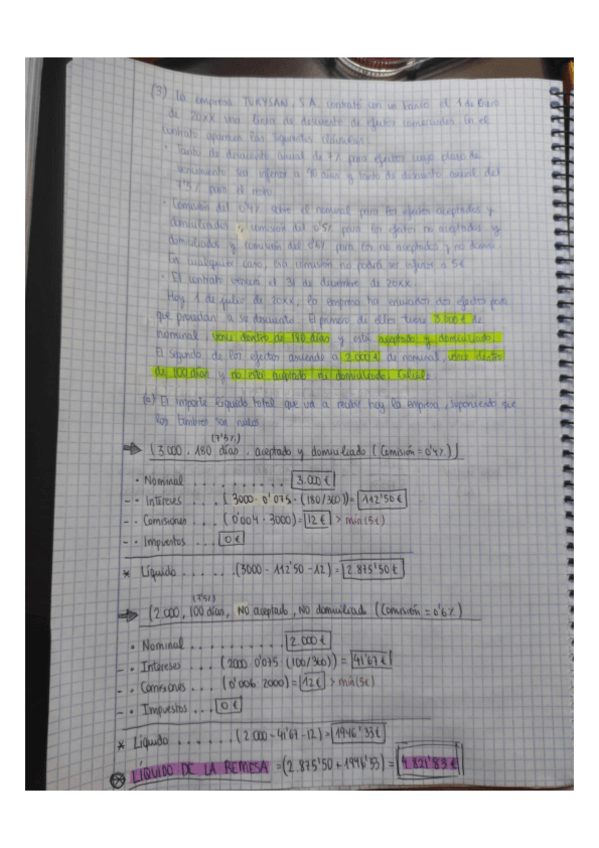 (3) La empresa TURYSAN, S.A. contrató con un banco el 1 de Enero
de 20XX una línea de descuento de efectos comerciales. En el
contrato aparecen las siguientes cláusulas:
· Tanto de descuento anual de 7% para efectos cuyo plazo de
vencimiento sea inferior a 90 días y tanto de descuento anual del
7'5% para el resto.
· Comisión del 0'4% sobre el nominal para los efectos aceptados y
domiciliados, comisión del 0'5% para los efectos no aceptados y
domiciliados y comisión del 0'6% para los no aceptados y no domic.
En cualquier caso, esa comisión no podrá ser inferior a 5€
· El contrato vencerá el 31 de diciembre de 20XX.
Hoy, 1 de julio de 20XX, la empresa ha enviado dos efectos para
que procedan a su descuento. El primero de ellos tiene 3.000€ de
nominal, vence dentro de 180 días y está aceptado y domiciliado.
El segundo de los efectos asciende a 2.000€ de nominal, vence dentro
de 100 días y no está aceptado ni domiciliado. Calcule:
(a) El importe líquido total que va a recibir hoy la empresa, suponiendo que
los timbres son nulos.
(7'5%)
(3.000, 180 días, aceptado y domiciliado (Comisión = 0'4%))
· Nominal .......... 3.000€
- · Intereses .... (3000 · 0'075 · (180/360)) = 112'50€
- · Comisiones ... (0'004 · 3000) = 12€ > min (5€)
- · Impuestos ... 0€
* Líquido ...... (3000 - 112'50 - 12) = 2.875'50€
(7'5%)
(2.000, 100 días, NO aceptado, NO domiciliado (Comisión = 0'6%)
· Nominal .......... 2.000€
- · Intereses .... (2000 · 0'075 (100/360)) = 41'67€
- · Comisiones ... (0'006 · 2000) = 12€ > min (5€)
- · Impuestos ... 0€
* Líquido ...... (2.000 - 41'67 - 12) = 1946'33€
LÍQUIDO DE LA REMESA = (2.875'50 + 1946'33) = 4.821'83€